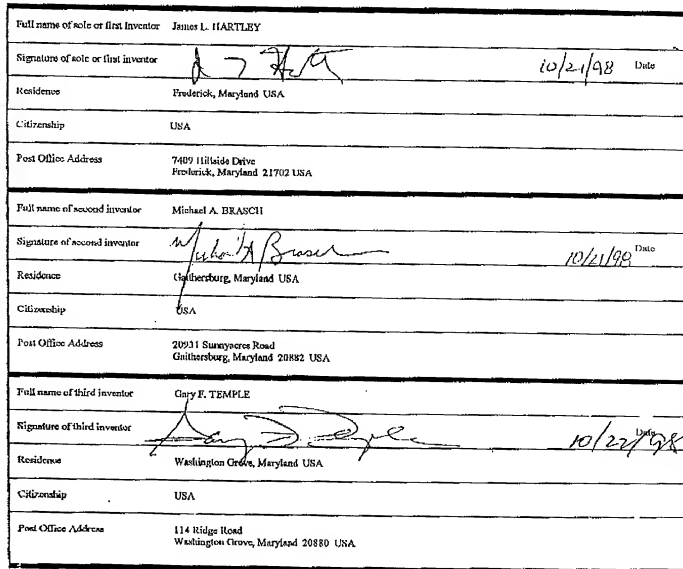 Full name of sole or first inventor James L. HARTLEY
Signature of sole or first inventor 10/21/98 Date
Residence Frederick, Maryland USA
Citizenship USA
Post Office Address 7409 Hillside Drive
Frederick, Maryland 21702 USA
Full name of second inventor Michael A. BRASCH
Signature of second inventor Michael A Brasch 10/21/98 Date
Residence Gaithersburg, Maryland USA
Citizenship USA
Post Office Address 20931 Sunnyacres Road
Gaithersburg, Maryland 20882 USA
Full name of third inventor Gary F. TEMPLE
Signature of third inventor 10/22/98 Date
Residence Washington Grove, Maryland USA
Citizenship USA
Post Office Address 114 Ridge Road
Washington Grove, Maryland 20880 USA